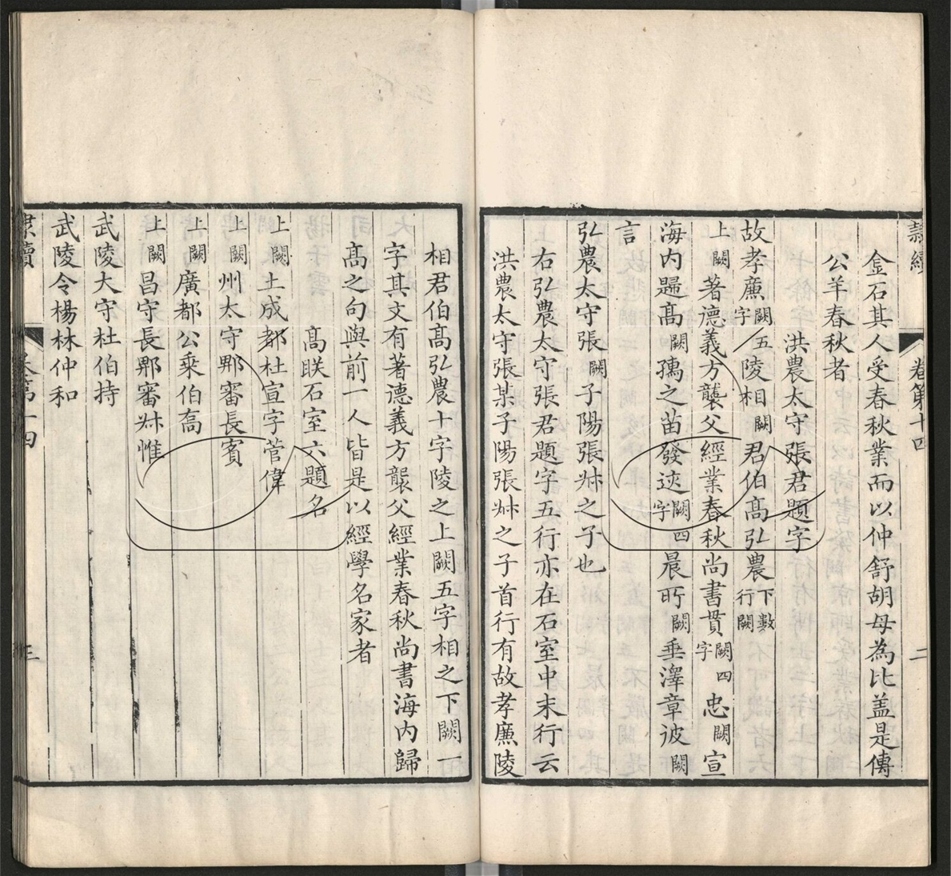 隸續 卷第十四 二
金石其人受春秋業而以仲舒胡母為比盖是傳
公羊春秋者
洪農太守張君題字
故孝廉闕五字陵相闕君伯髙弘農下數行闕
上闕著德義方襲父經業春秋尚書貫闕四字忠闕宣
海内歸髙闕孺之苗發迹闕四字晨㫄闕垂澤章彼闕
言
弘農太守張闕子陽張妹之子也
右弘農太守張君題字五行亦在石室中末行云
洪農太守張某子陽張妹之子首行有故孝廉陵
相君伯髙弘農十字陵之上闕五字相之下闕一
字其文有著德義方襲父經業春秋尚書海内歸
髙之句與前一人皆是以經學名家者
髙朕石室六題名
上闕土成都杜宣字管偉
上闕州太守鄢審長賓
上闕廣都公乘伯喬
上闕昌守長鄢審妹惟
武陵大守杜伯持
武陵令楊林仲和
隸續 卷第十四 三